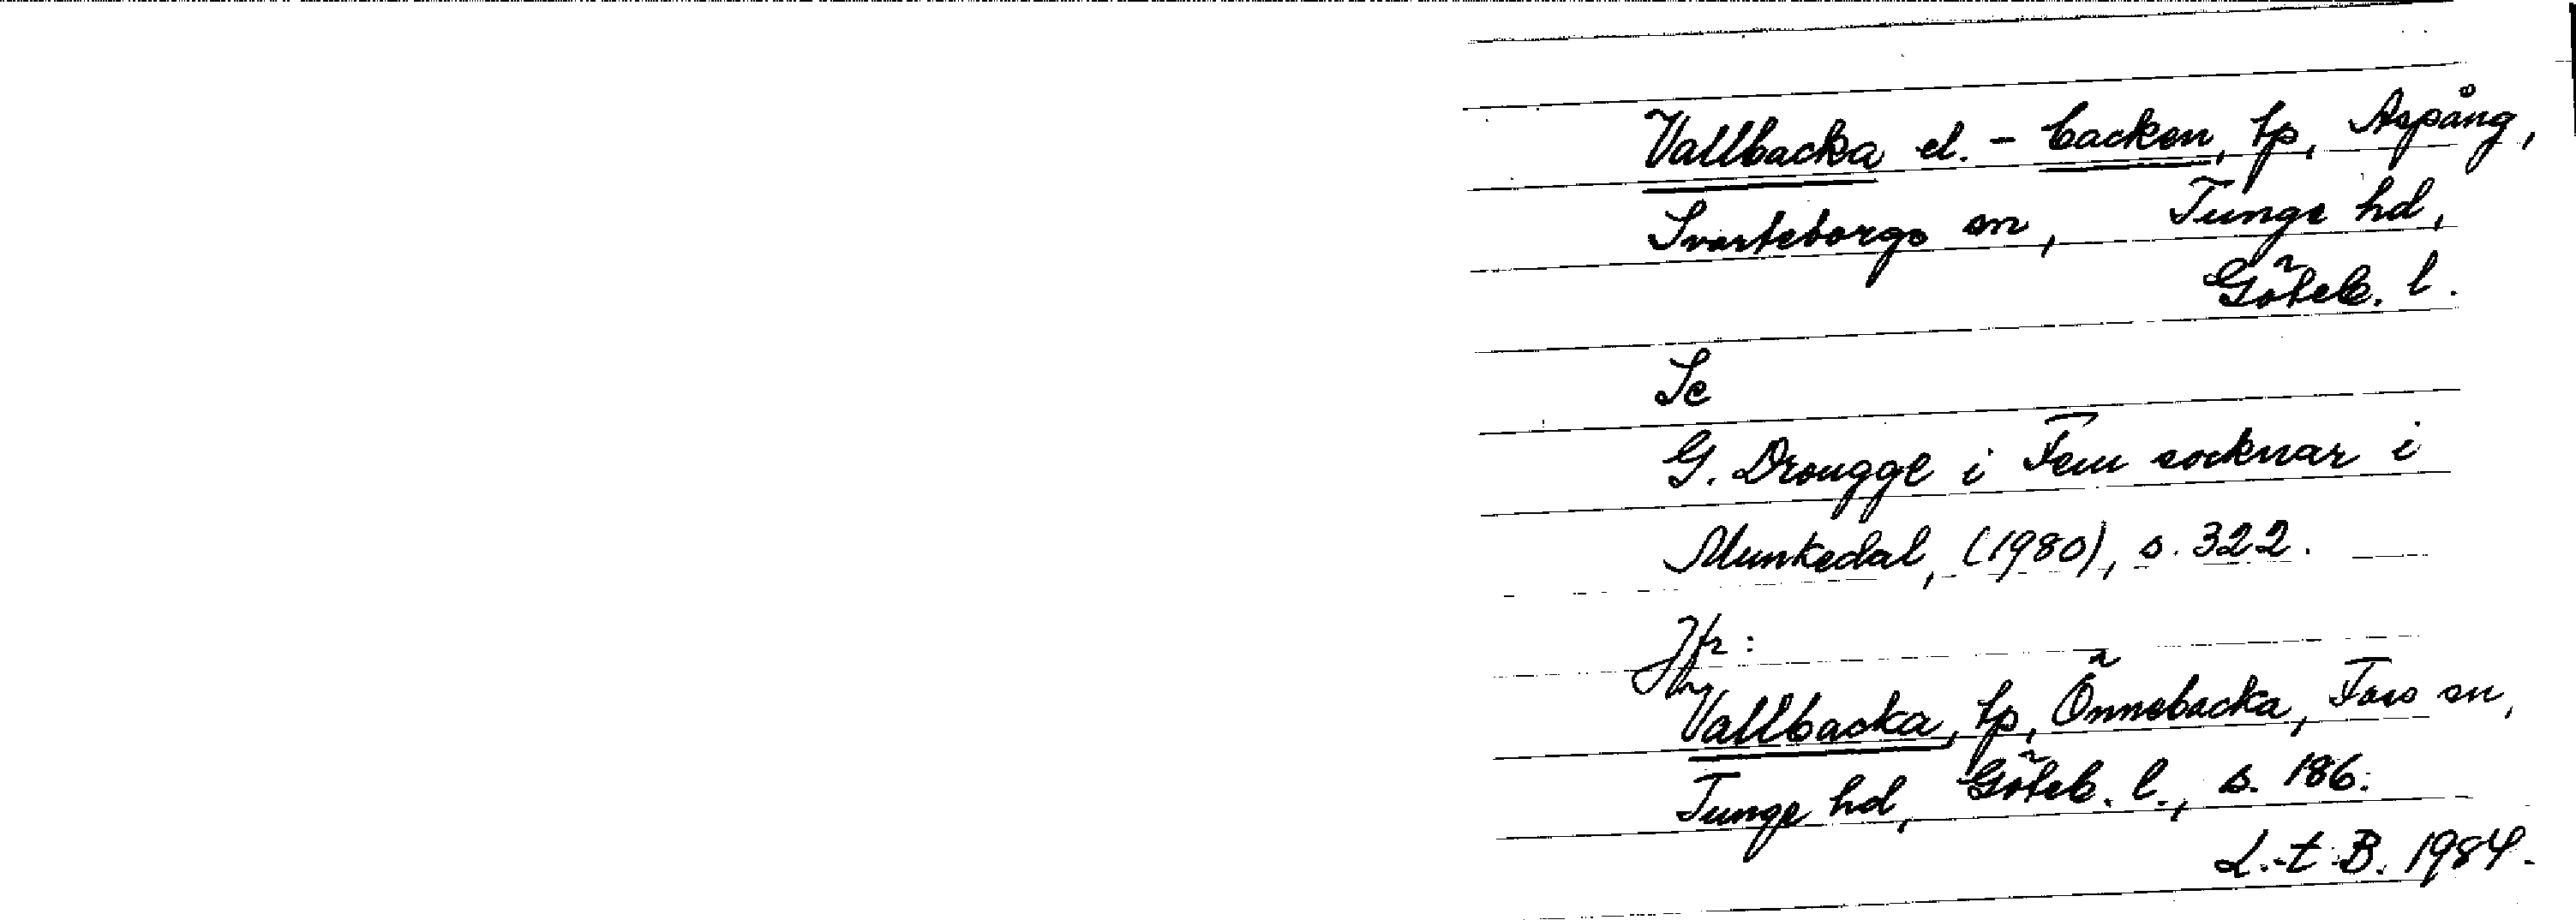 Vallbacka el. -backen, tp, Aspång,
Svarteborgs sn, Tunge hd,
Göteb. l.
Se
G. Drougge i Fem socknar i
Munkedal, (1980), s. 322.
Jfr:
Vallbacka, tp, Önnebacka, Foss sn,
Tunge hd, Göteb. l., s. 186.
L. t. B. 1984.